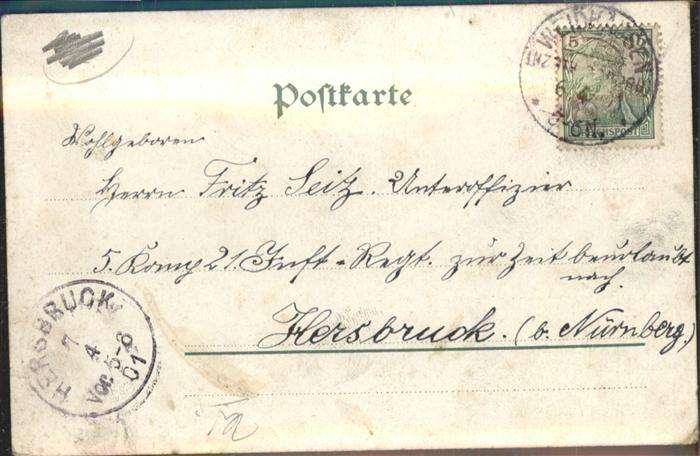 Postkarte
5
5
REICHSPOST
6
4
5-6N
Wohlgeboren
Herrn Fritz Seitz. Unteroffizier
5. Komp 21. Inft-Regt. zur Zeit beurlaubt
nach.
Hersbruck. (b. Nürnberg.)
HERSBRUCK
7
4
Vor. 5-6
01